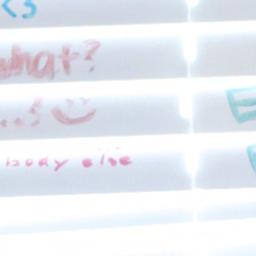 <3
what?
...! :)
body else